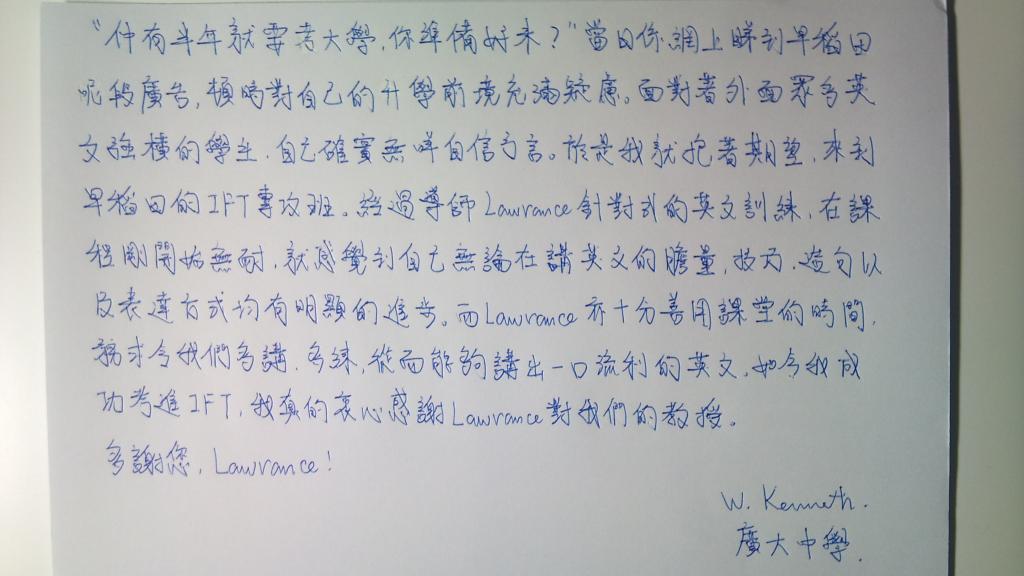 “仲有半年就要考大學，你準備好未？”當日係網上睇到早稻田
呢段廣告，頓時對自己的升學前境充滿疑慮。面對著外面眾多英
文強橫的學生，自己確實無咩自信可言。於是我就抱著期望，來到
早稻田的IFT專攻班。經過導師Lawrance針對式的英文訓練，在課
程剛開始無耐，就感覺到自己無論在講英文的膽量，技巧，造句以
及表達方式均有明顯的進步。而Lawrance亦十分善用課堂的時間，
務求令我們多講，多練，從而能夠講出一口流利的英文。如今我成
功考進IFT，我真的衷心感謝Lawrance對我們的教授。
多謝您，Lawrance！
W. Kenneth.
廣大中學.